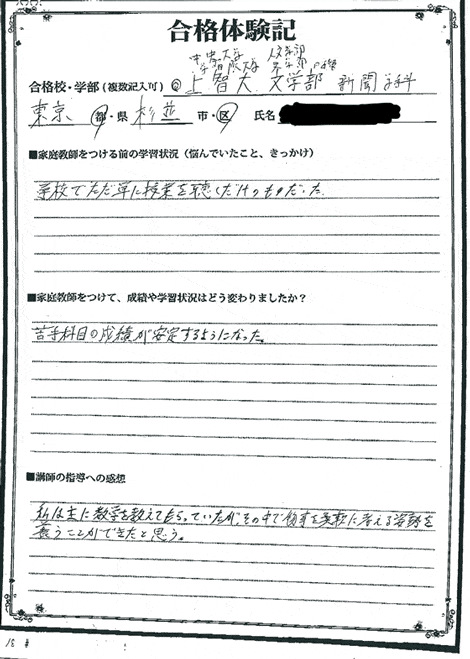 合格体験記
中央大学 文学部
合格校・学部（複数記入可）◎上智大 文学部 新聞学科
東京 都・県 杉並 市・区 氏名
■家庭教師をつける前の学習状況（悩んでいたこと、きっかけ）
学校でただ単に授業を聴くだけのものだった
■家庭教師をつけて、成績や学習状況はどう変わりましたか？
苦手科目の成績が安定するようになった。
■講師の指導への感想
私は主に数学を教えてもらっていたがその中で物事を柔軟に考える姿勢を
養うことができたと思う。